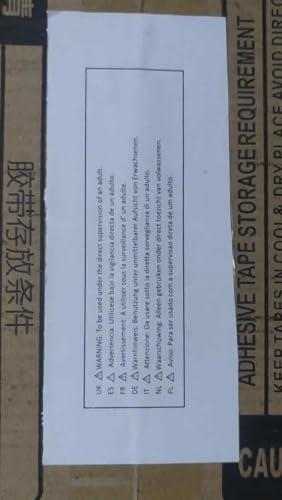 UK ⚠ WARNING: To be used under the direct supervision of an adult.
ES ⚠ Advertencia: Utilícese bajo la vigilancia directa de un adulto.
FR ⚠ Avertissement: A utiliser sous la surveillance d' un adulte.
DE ⚠ Warnhinweis: Benutzung unter unmittelbarer Aufsicht von Erwachsenen.
IT ⚠ Attenzione: Da usare sotto la diretta sorveglianza di un adulto.
NL ⚠ Waarschuwing: Alleen gebruiken onder direct toezicht van volwassenen.
PL ⚠ Aviso: Para ser usado com a supervisao direta de um adulto.
胶带存放条件
ADHESIVE TAPE STORAGE REQUIREMENT
KEEP TAPES IN COOL & DRY PLACE AVOID DIREC
CAU